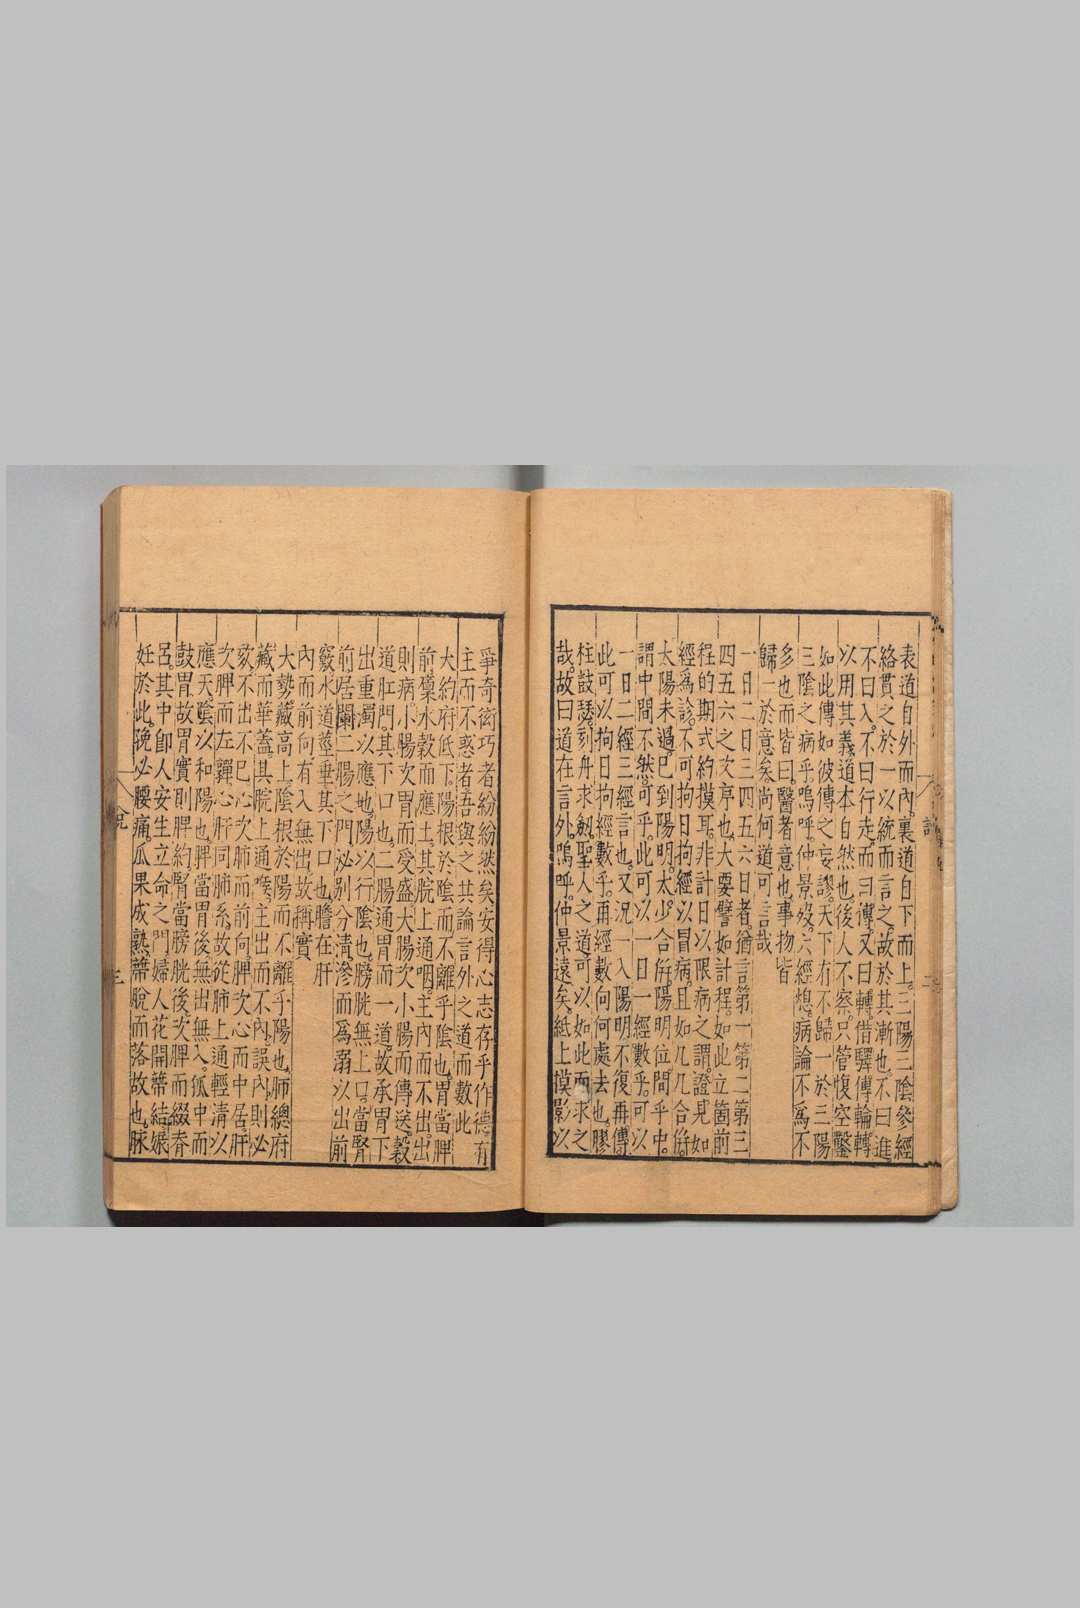 表道自外而內裏道自下而上三陽三陰參經
絡貫之於一以統而言之故於其漸也不曰進
不曰入不曰行走而曰傳又曰轉借驛傳輪轉
以用其義道本自然也後人不察只管愎空鑿
如此傳如彼傳之妄謬天下有不歸一於三陽
三陰之病乎嗚呼仲景歿六經熄病論不為不
多也而皆曰醫者意也事物皆
歸一於意矣尚何道可言哉
一日二日三四五六日者猶言第一第二第三
四五六之次序也大要譬如計程如此立箇前
程的期式約摸耳非計日以限病之謂證見如
經為診不可拘日拘經以冒病且如几几合餅
太陽未過已到陽明太少合餅陽明位間乎中
謂中間不然可乎此可以一日一經數乎可以
一日二經三經言也又況一入陽明不復再傳
此可以拘日拘經數乎再經數向何處去也膠
柱鼓瑟刻舟求劍聖人之道可以如此而求之
哉故曰道在言外嗚呼仲景遠矣紙上摸影以
爭奇衒巧者紛紛然矣安得心志存乎作德有
主而不惑者吾與之共論言外之道而數此
大約府低下陽根於陰而不離乎陰也胃當脾
前稟水穀而應土其脘上通咽主內而不出出
則病小腸次胃而受盛大腸次小腸而傳送穀
道肛門其下口也二腸通胃而一道故承胃下
出重濁以應地陽以行陰也膀胱無上口當腎
前居闌二腸之門泌別分清滲而為溺以出前
竅水道莖垂其下口也膽在肝
內而前向有入無出故稱實
大勢藏高上陰根於陽而不離乎陽也肺總府
藏而華蓋其脘上通喉主出而不內誤內則必
欬不出不巳心次肺而前向脾次心而中居肝
次脾而左嚲心肝同肺系故從肺上通輕清以
應天陰以和陽也脾當胃後無出無入孤中而
鼓胃故胃實則脾約腎當膀胱後次脾而綴脊
呂其中卽人安生立命之門婦人花開蔕結娠
妊於此娩必腰痛瓜果成熟蔕脫而落故也脉